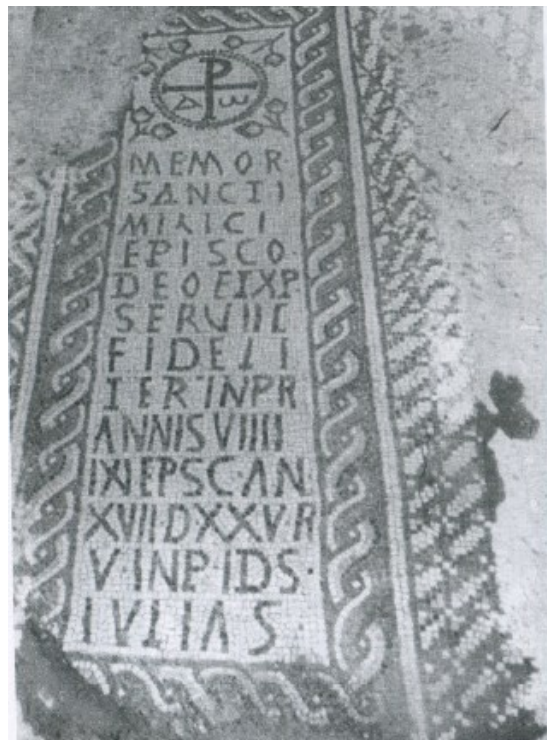 A ω
MEMOR
SANCTI I
EPISCO·
DEO EIXP
SERVIIE
FIDELI
TER INPR
ANNIS VIIII
IXIEPSC·AN
XVII·DXXV·R
V·INP·IDS·
IVLIAS